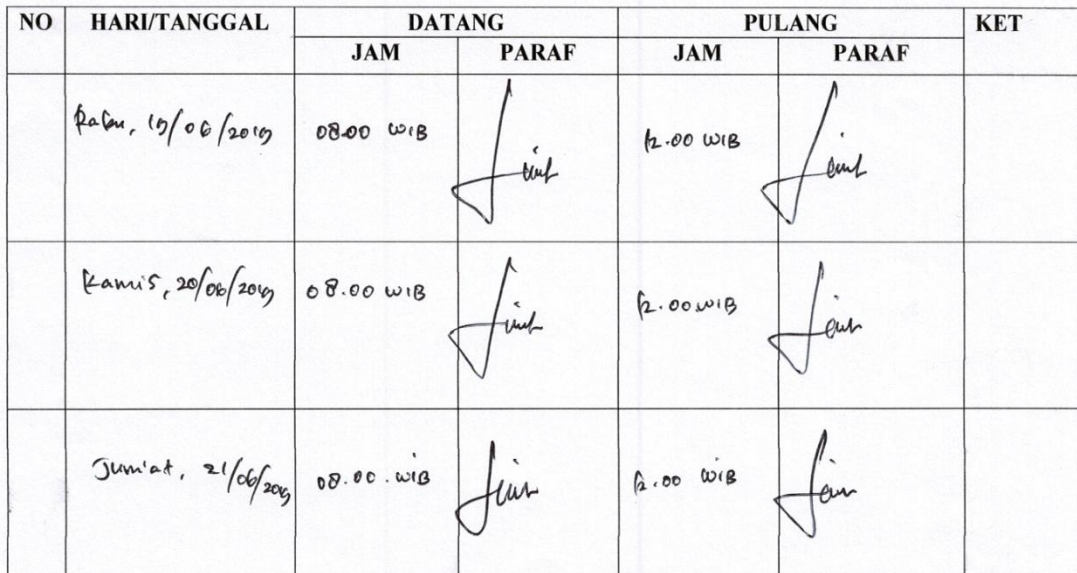 NO HARI/TANGGAL DATANG PULANG KET
JAM PARAF JAM PARAF
Rabu, 19/06/2019 08.00 WIB 12.00 WIB
Kamis, 20/06/2019 08.00 WIB 12.00 WIB
Jum'at, 21/06/2019 08.00 WIB 12.00 WIB